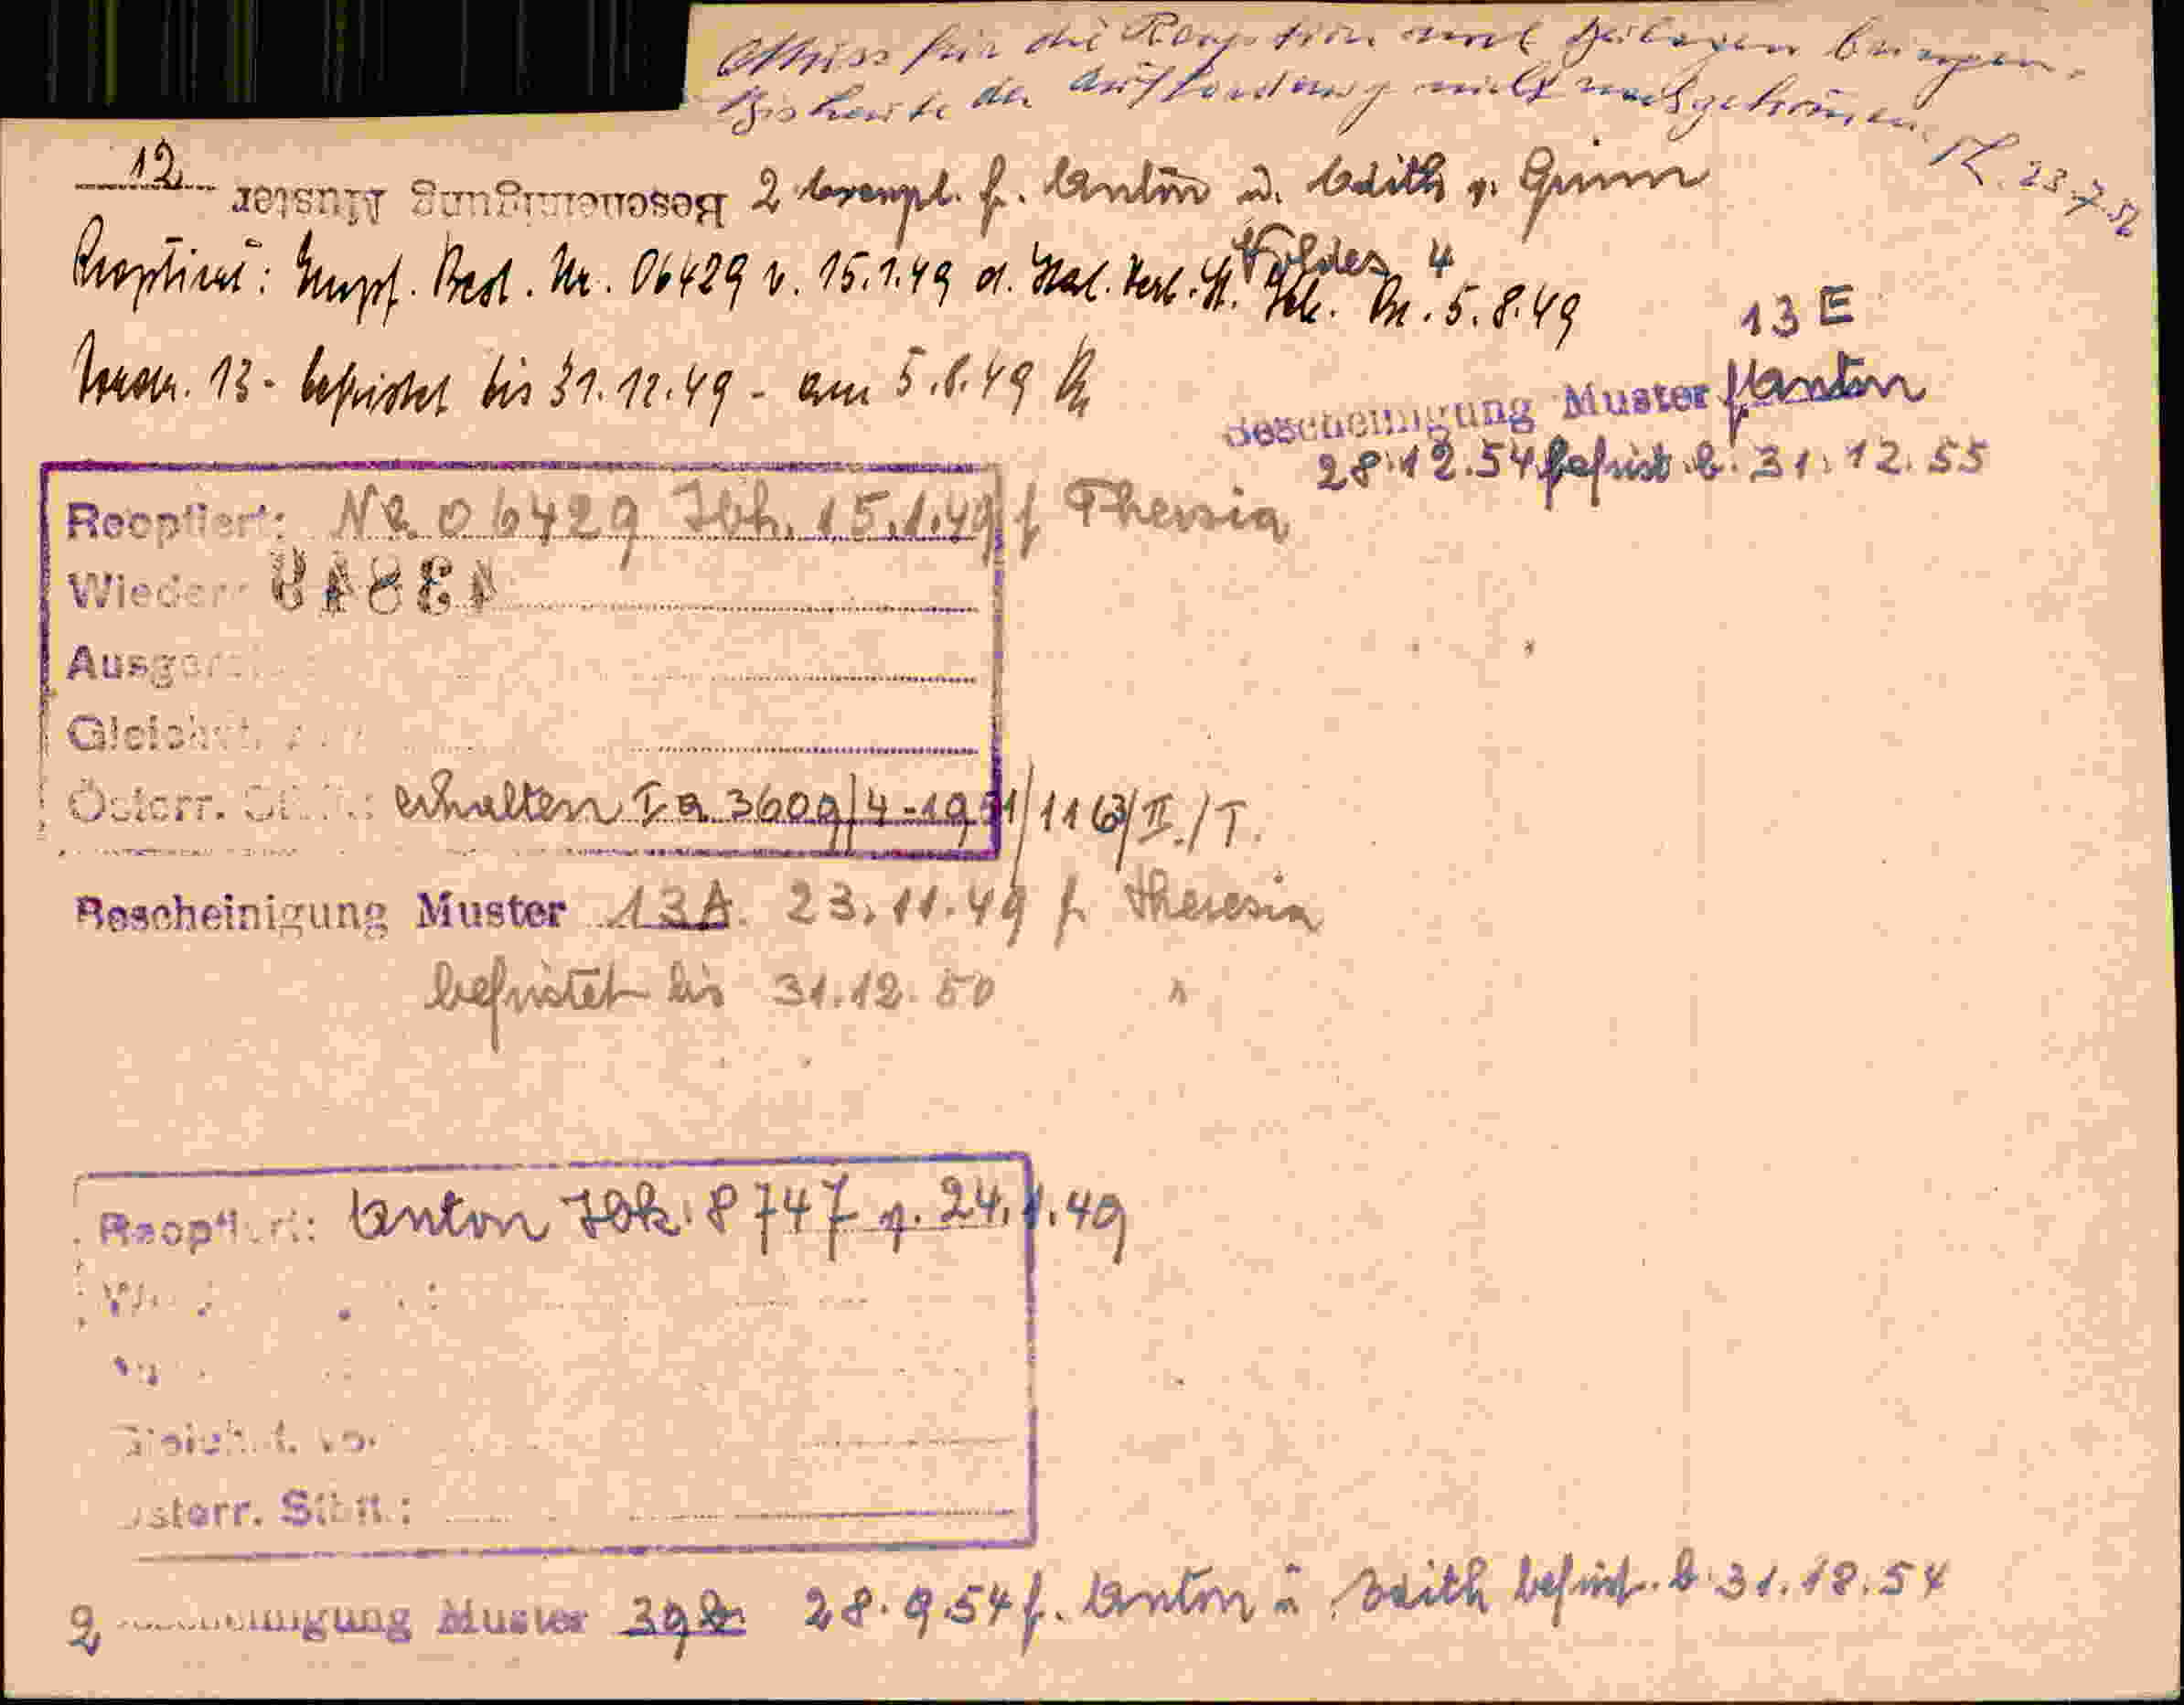 Muss für die Reoption noch Beilagen bringen.
Bis heute der Aufforderung nicht nachgekommen.
K. 23.7.52
12 Bescheinigung Muster 2 Exempl. f. Anton u. Edith v. Grimm
Reoptiert: Empf. Best. Nr. 06429 v. 15.1.49 d. Ital. Verb. St. Ibk. 5.8.49
Foldes 4
13 - befristet bis 31.12.49 - am 5.8.49
13 E
Bescheinigung Muster f. Anton
28.12.54 befrist. b. 31.12.55
Reoptiert: N. 06429 Ibk. 15.1.49 f. Theresia
Wieder
Gleichst.
Österr. Stbft.: erhalten I a 3609/4-1951/1163/II./T.
Bescheinigung Muster 13A. 23.11.49 f. Theresia
befristet bis 31.12.50 "
Reoptiert: Anton Ibk. 8747 v. 24.1.49
Gleichst. vo
Österr. Stbft.:
2 Bescheinigung Muster 39 28.9.54 f. Anton u. Edith befrist. b. 31.12.54